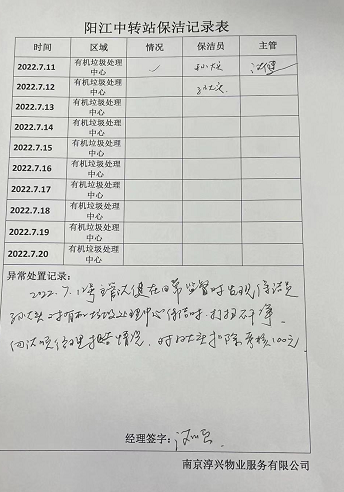 阳江中转站保洁记录表
时间 区域 情况 保洁员 主管
2022.7.11 有机垃圾处理中心 ✓
2022.7.12 有机垃圾处理中心
2022.7.13 有机垃圾处理中心
2022.7.14 有机垃圾处理中心
2022.7.15 有机垃圾处理中心
2022.7.16 有机垃圾处理中心
2022.7.17 有机垃圾处理中心
2022.7.18 有机垃圾处理中心
2022.7.19 有机垃圾处理中心
2022.7.20 有机垃圾处理中心
异常处置记录：
2022.7.12 在日常监督时发现保洁员
对有机垃圾处理中心保洁时，打扫不干净。
经理报告情况，对 扣除考核100元
经理签字：
南京淳兴物业服务有限公司